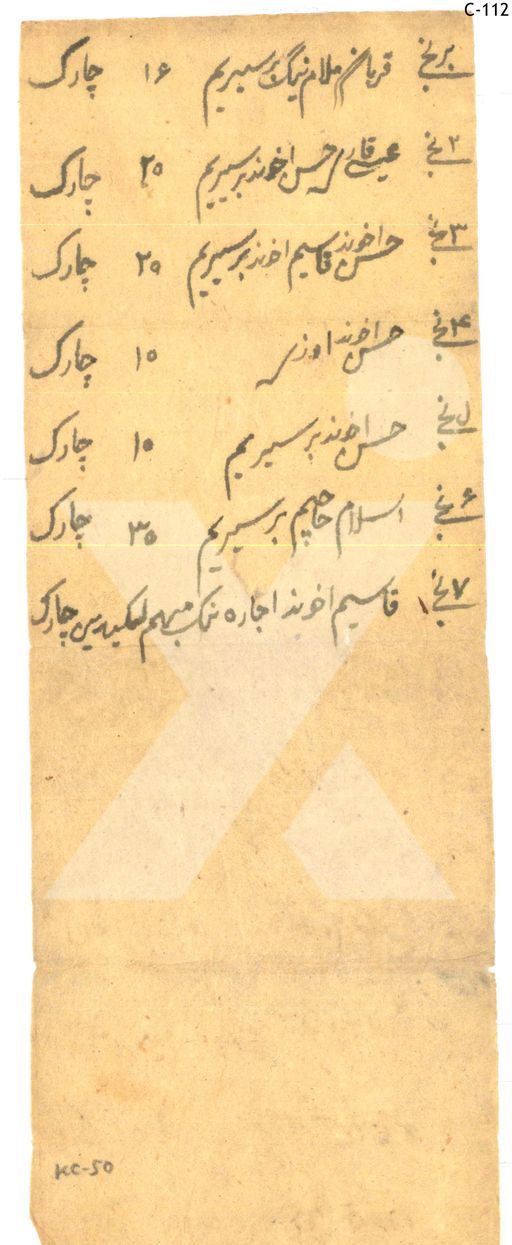 C-112
برنجی قربان ملام نینگ بر سیریم ۱۶ چارک
۲ نجی عیسی قاری حسن اخوند بر سیریم ۲۰ چارک
۳ نجی حسن اخوند قاسیم اخوند بر سیریم ۲۰ چارک
۴ نجی حسن اخوند اوز ۱۰ چارک
نجی حسن اخوند بر سیریم ۱۰ چارک
۶ نجی اسلام حاجیم بر سیریم ۳۰ چارک
۷ نجی قاسیم اخوند اجاره چارک
KC-50